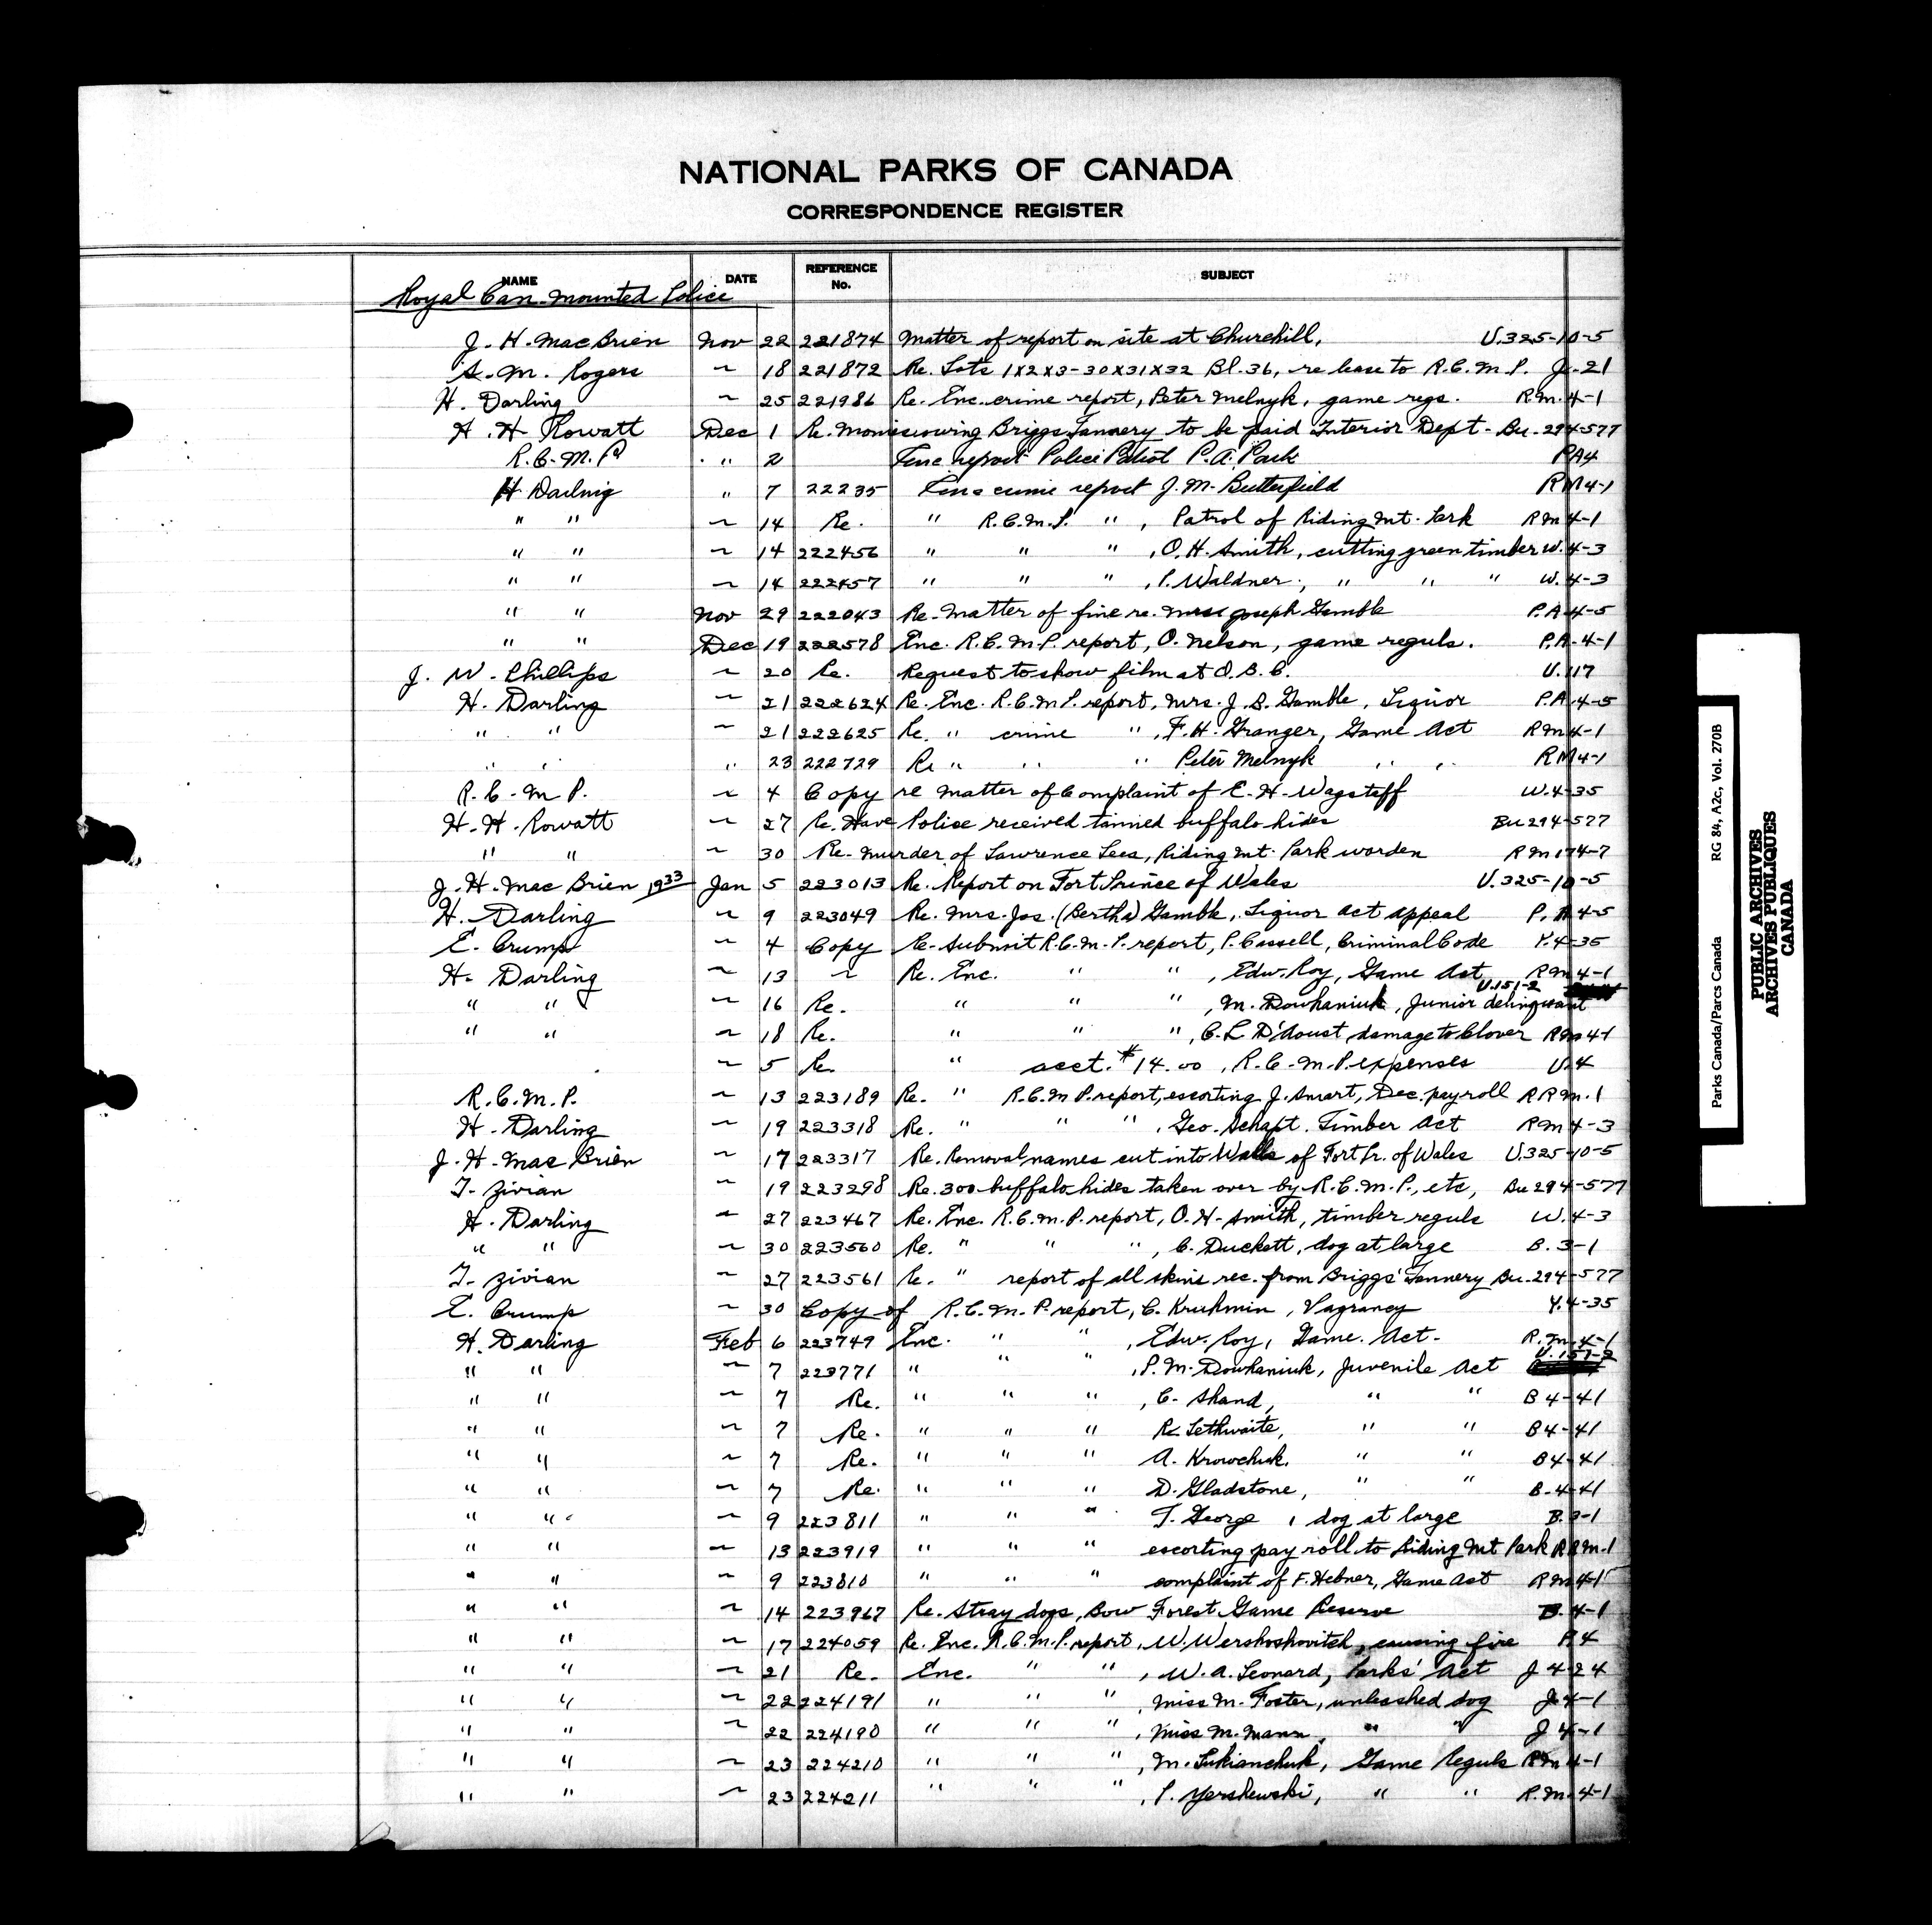 NATIONAL PARKS OF CANADA
CORRESPONDENCE REGISTER
NAME DATE REFERENCE No. SUBJECT
Royal Can. Mounted Police
J. H. MacBrien Nov 22 221874 Matter of report on site at Churchill, U.325-10-5
S. M. Rogers ~ 18 221872 Re. Lots 1X2X3-30X31X32 Bl. 36, re lease to R.C.M.P. J.-21
H. Darling ~ 25 221986 Re. Enc. crime report, Peter Melnyk, game regs. R.M.4-1
H. H. Rowatt Dec 1 Re. Monies owing Briggs Tannery to be paid Interior Dept - Bu-294-577
R.C.M.P " 2 Enc report Police Patrol P.A. Park PA4
H Darling " 7 22235 Enc crime report J.M. Butterfield RM4-1
" " ~ 14 Re. " R.C.M.P. " , Patrol of Riding Mt. Park RM4-1
" " ~ 14 222456 " " " , O.H. Smith, cutting green timber W.4-3
" " ~ 14 222457 " " " , P. Waldner, " " " W.4-3
" " Nov 29 222043 Re. Matter of fine re. Mrs Joseph Gamble P.A.4-5
" " Dec 19 222578 Enc. R.C.M.P. report, O. Nelson, game reguls. P.A.4-1
J. W. Phillips ~ 20 Re. Request to show film at O.B.C. U.117
H. Darling ~ 21 222624 Re. Enc. R.C.M.P. report, Mrs. J. B. Gamble, Liquor P.A.4-5
" " ~ 21 222625 Re. " crime " , F.H. Granger, Game Act RM4-1
" " " 23 222729 Re " " " Peter Melnyk " " RM4-1
R.C.M.P. ~ 4 Copy re matter of Complaint of E.H. Wagstaff W.4-35
H. H. Rowatt ~ 27 Re. Have Police received tanned buffalo hides Bu294-577
" " ~ 30 Re. Murder of Lawrence Lees, Riding Mt. Park warden RM174-7
J. H. MacBrien 1933 Jan 5 223013 Re. Report on Fort Prince of Wales U.325-10-5
H. Darling ~ 9 223049 Re. Mrs. Jos. (Bertha) Gamble, Liquor Act Appeal P.A4-5
E. Crump ~ 4 Copy Re. Submit R.C.M.P. report, P. Cassell, Criminal Code Y.4-35
H. Darling ~ 13 ~ Re. Enc. " " , Edw. Roy, Game Act RM4-1
" " ~ 16 Re. " " " , M. Dowhaniuk, Junior delinquant U.151-2
" " ~ 18 Re. " " " , C.L. D'Aoust, damage to Clover RM4-1
~ 5 Re. " acct. $14.00, R.C.M.P. expenses U.4
R.C.M.P. ~ 13 223189 Re. " R.C.M.P. report, escorting J. Smart, Dec. payroll RRM.1
H. Darling ~ 19 223318 Re. " " " , Geo. Schapt. Timber Act RM4-3
J. H. MacBrien ~ 17 223317 Re. Removal names cut into Walls of Fort Pr. of Wales U.325-10-5
T. Zivian ~ 19 223298 Re. 300 buffalo hides taken over by R.C.M.P., etc, Bu294-577
H. Darling ~ 27 223467 Re. Enc. R.C.M.P. report, O.H. Smith, timber reguls W.4-3
" " ~ 30 223560 Re. " " " , C. Duckett, dog at large B.3-1
T. Zivian ~ 27 223561 Re. " report of all skins rec. from Briggs' Tannery Bu-294-577
E. Crump ~ 30 Copy of R.C.M.P. report, C. Kruhmin, Vagrancy Y.4-35
H. Darling Feb 6 223749 Enc. " " , Edw. Roy, Game. Act. R.M.4-1
" " ~ 7 223771 " " " , P.M. Dowhaniuk, Juvenile Act U.151-2
" " ~ 7 Re. " " " , C. Shand, " " B4-41
" " ~ 7 Re. " " " R. Lethwaite, " " B4-41
" " ~ 7 Re. " " " A. Krowchuk. " " B4-41
" " ~ 7 Re. " " " D. Gladstone, " " B.4-41
" " ~ 9 223811 " " " T. George , dog at large B.3-1
" " ~ 13 223919 " " " escorting pay roll to Riding Mt Park RRM.1
" " ~ 9 223810 " " " complaint of F. Hebner, Game Act RM4-1
" " ~ 14 223967 Re. Stray dogs, Bow Forest Game Reserve B.4-1
" " ~ 17 224059 Re. Enc. R.C.M.P. report, W. Wershoshovitch, causing fire P.4
" " ~ 21 Re. Enc. " " , W.A. Leonard, Parks' Act J4-24
" " ~ 22 224191 " " " , Miss M. Foster, unleashed dog J.4-1
" " ~ 22 224190 " " " , Miss M. Mann, " " J4-1
" " ~ 23 224210 " " " , M. Lukianchuk, Game Reguls RM4-1
" " ~ 23 224211 " " " , P. Yershewski, " " R.M.4-1
Parks Canada/Parcs Canada RG 84, A2c, Vol. 270B
PUBLIC ARCHIVES
ARCHIVES PUBLIQUES
CANADA